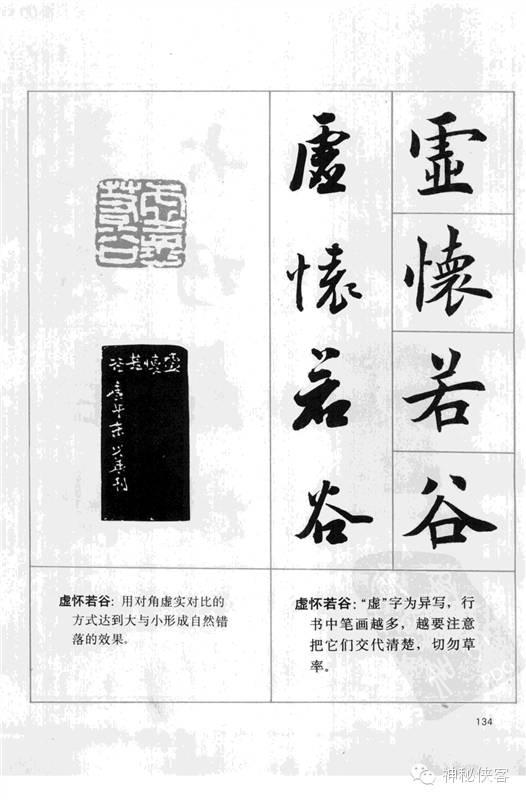 虛懷若谷
虛懷若谷
虛懷若谷
虛懷若谷
虚怀若谷：用对角虚实对比的
方式达到大与小形成自然错
落的效果。
虚怀若谷：“虚”字为异写，行
书中笔画越多，越要注意
把它们交代清楚，切勿草
率。
134
神秘侠客